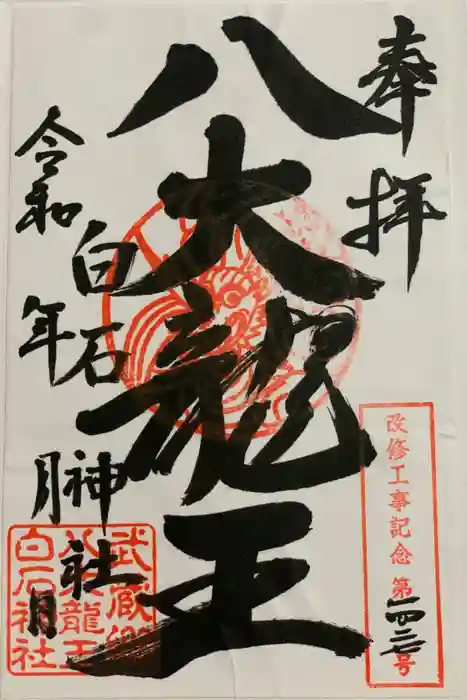 奉拝
改修工事記念 第一四三号
八大龍王
白石神社
令和 年 月 日
武蔵御
八大龍王
白石神社